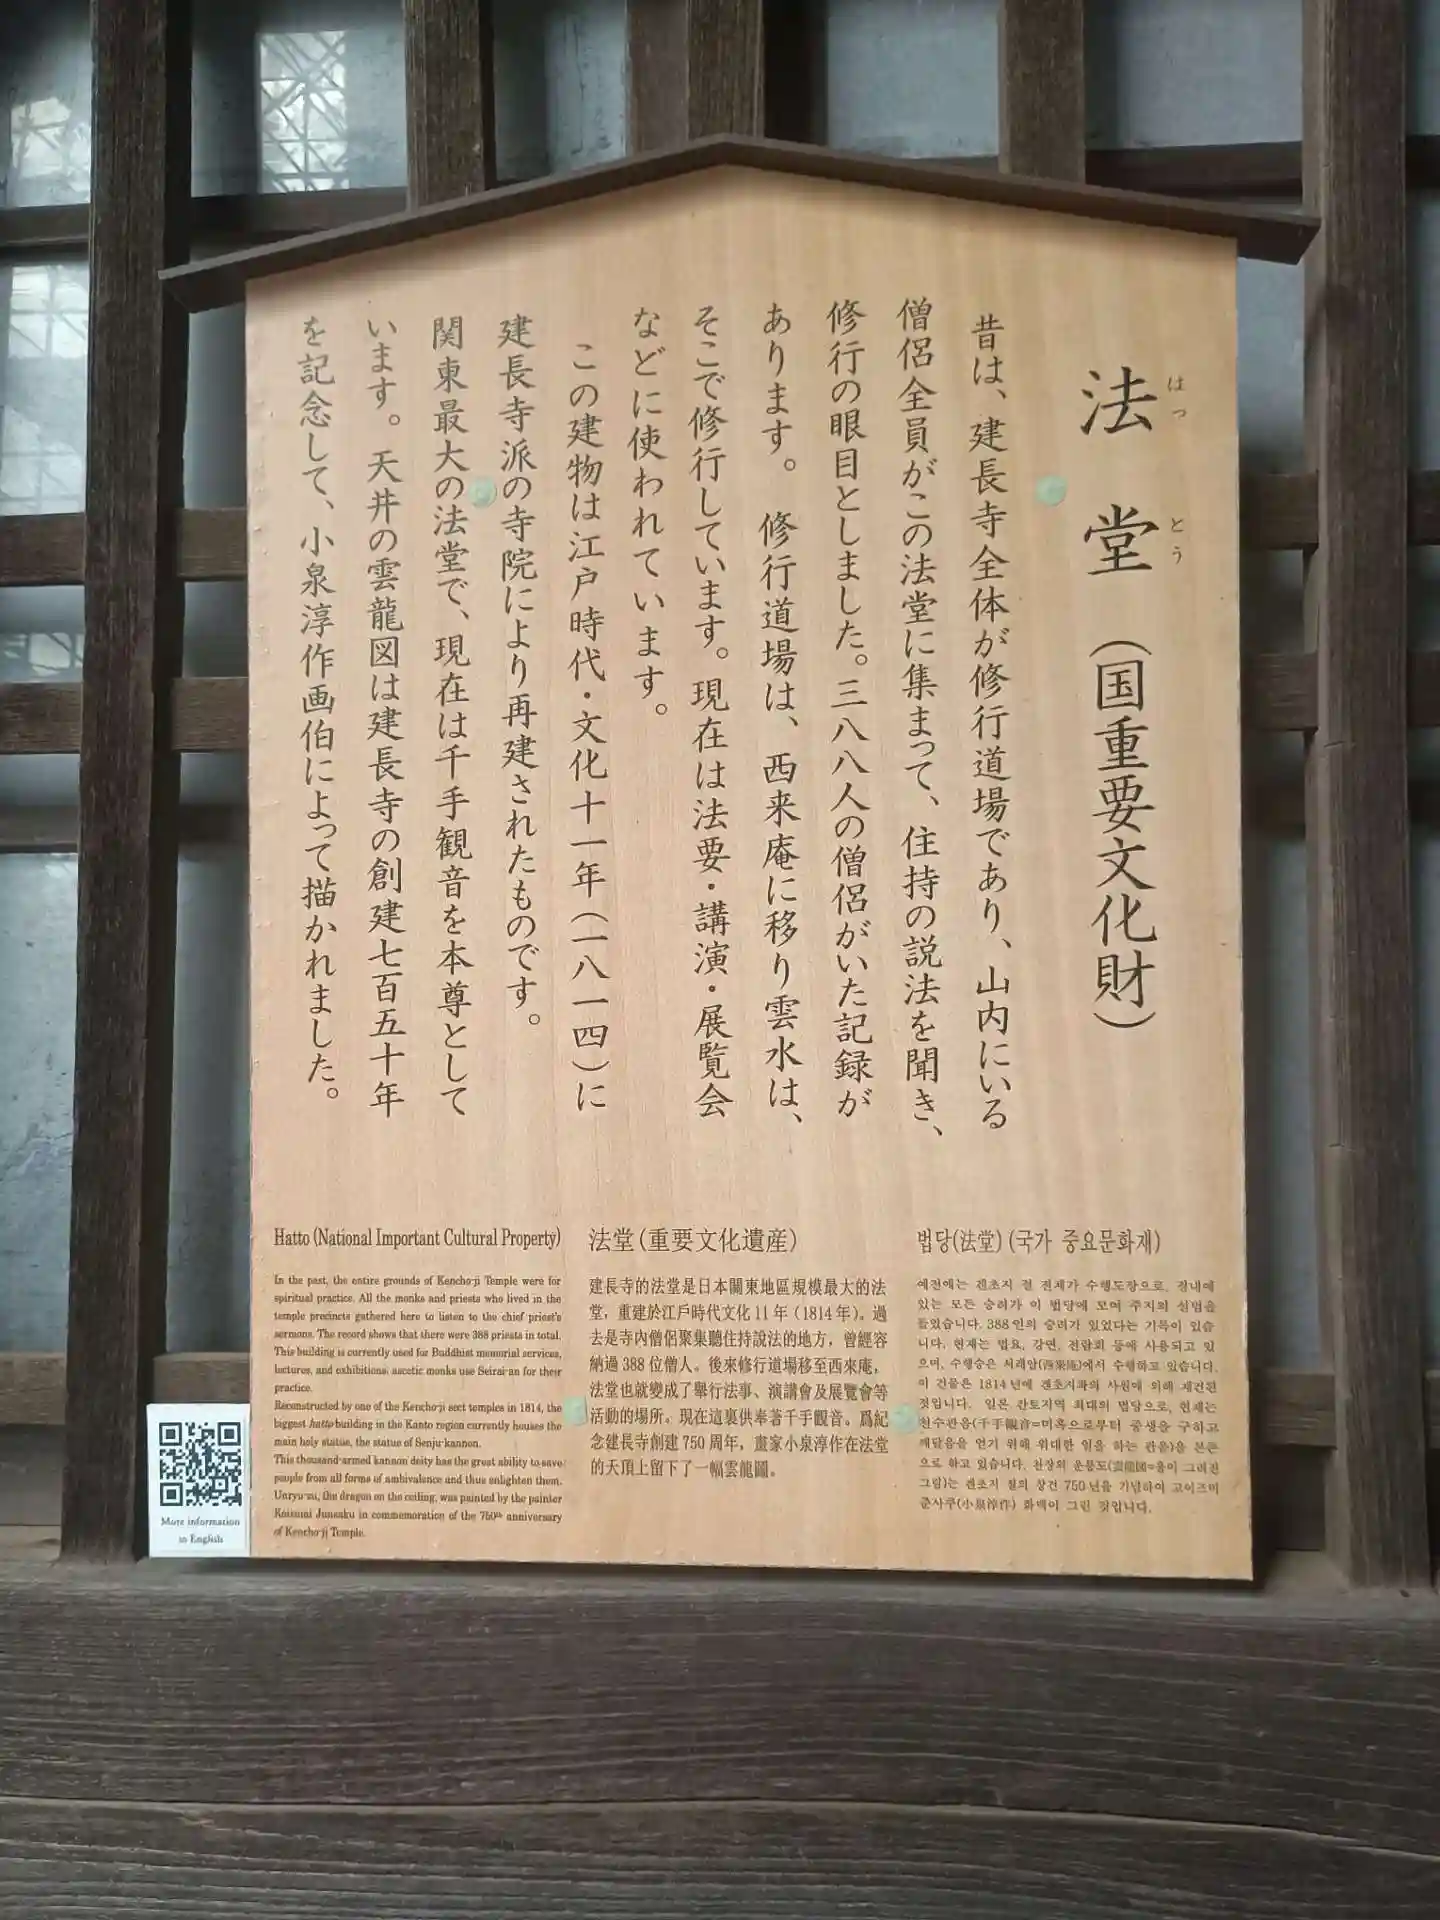 法堂（国重要文化財）
はっとう
昔は、建長寺全体が修行道場であり、山内にいる
僧侶全員がこの法堂に集まって、住持の説法を聞き、
修行の眼目としました。三八八人の僧侶がいた記録が
あります。　修行道場は、西来庵に移り雲水は、
そこで修行しています。現在は法要・講演・展覧会
などに使われています。
この建物は江戸時代・文化十一年（一八一四）に
建長寺派の寺院により再建されたものです。
関東最大の法堂で、現在は千手観音を本尊として
います。天井の雲龍図は建長寺の創建七百五十年
を記念して、小泉淳作画伯によって描かれました。
Hatto (National Important Cultural Property)
In the past, the entire grounds of Kencho-ji Temple were for
spiritual practice. All the monks and priests who lived in the
temple precincts gathered here to listen to the chief priest's
sermons. The record shows that there were 388 priests in total.
This building is currently used for Buddhist memorial services,
lectures, and exhibitions; ascetic monks use Seirai-an for their
practice.
Reconstructed by one of the Kencho-ji sect temples in 1814, the
biggest hatto building in the Kanto region currently houses the
main holy statue, the statue of Senju-kannon.
This thousand-armed kannon deity has the great ability to save
people from all forms of ambivalence and thus enlighten them.
Unryu-zu, the dragon on the ceiling, was painted by the painter
Koizumi Junsaku in commemoration of the 750th anniversary
of Kencho-ji Temple.
法堂（重要文化遺産）
建長寺的法堂是日本關東地區規模最大的法
堂，重建於江戶時代文化11年（1814年）。過
去是寺內僧侶聚集聽住持說法的地方，曾經容
納過388位僧人。後來修行道場移至西來庵，
法堂也就變成了舉行法事、演講會及展覽會等
活動的場所。現在這裏供奉著千手觀音。爲紀
念建長寺創建750周年，畫家小泉淳作在法堂
的天頂上留下了一幅雲龍圖。
법당(法堂) (국가 중요문화재)
예전에는 겐초지 절 전체가 수행도장으로, 경내에
있는 모든 승려가 이 법당에 모여 주지의 설법을
들었습니다. 388인의 승려가 있었다는 기록이 있습
니다. 현재는 법요, 강연, 전람회 등에 사용되고 있
으며, 수행승은 서래암(西來庵)에서 수행하고 있습니다.
이 건물은 1814년에 겐초지파의 사원에 의해 재건된
것입니다. 일본 간토지역 최대의 법당으로, 현재는
천수관음(千手觀音=미혹으로부터 중생을 구하고
깨달음을 얻기 위해 위대한 일을 하는 관음)을 본존
으로 하고 있습니다. 천장의 운룡도(雲龍図=용이 그려진
그림)는 겐초지 절의 창건 750년을 기념하여 고이즈미
준사쿠(小泉淳作) 화백이 그린 것입니다.
More information
in English